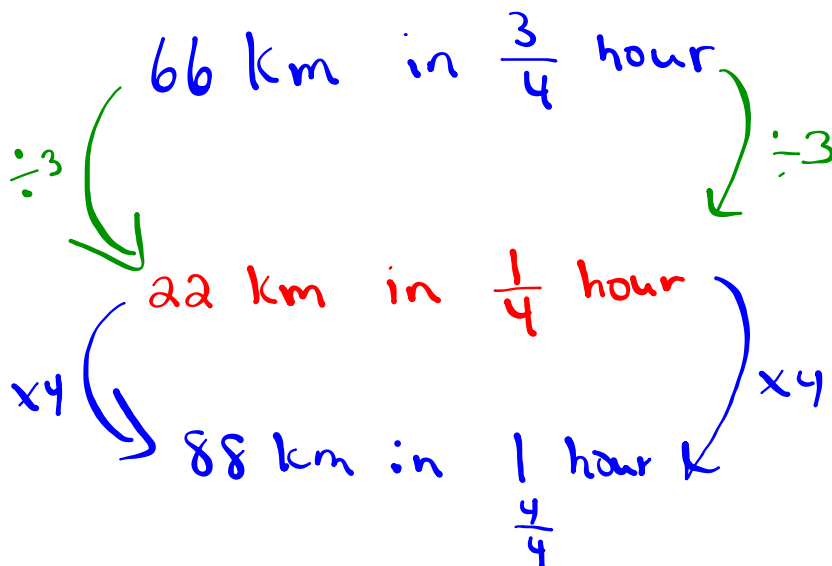 66 km in 3/4 hour
÷3 ÷3
22 km in 1/4 hour
x4 x4
88 km in 1 hour
4/4